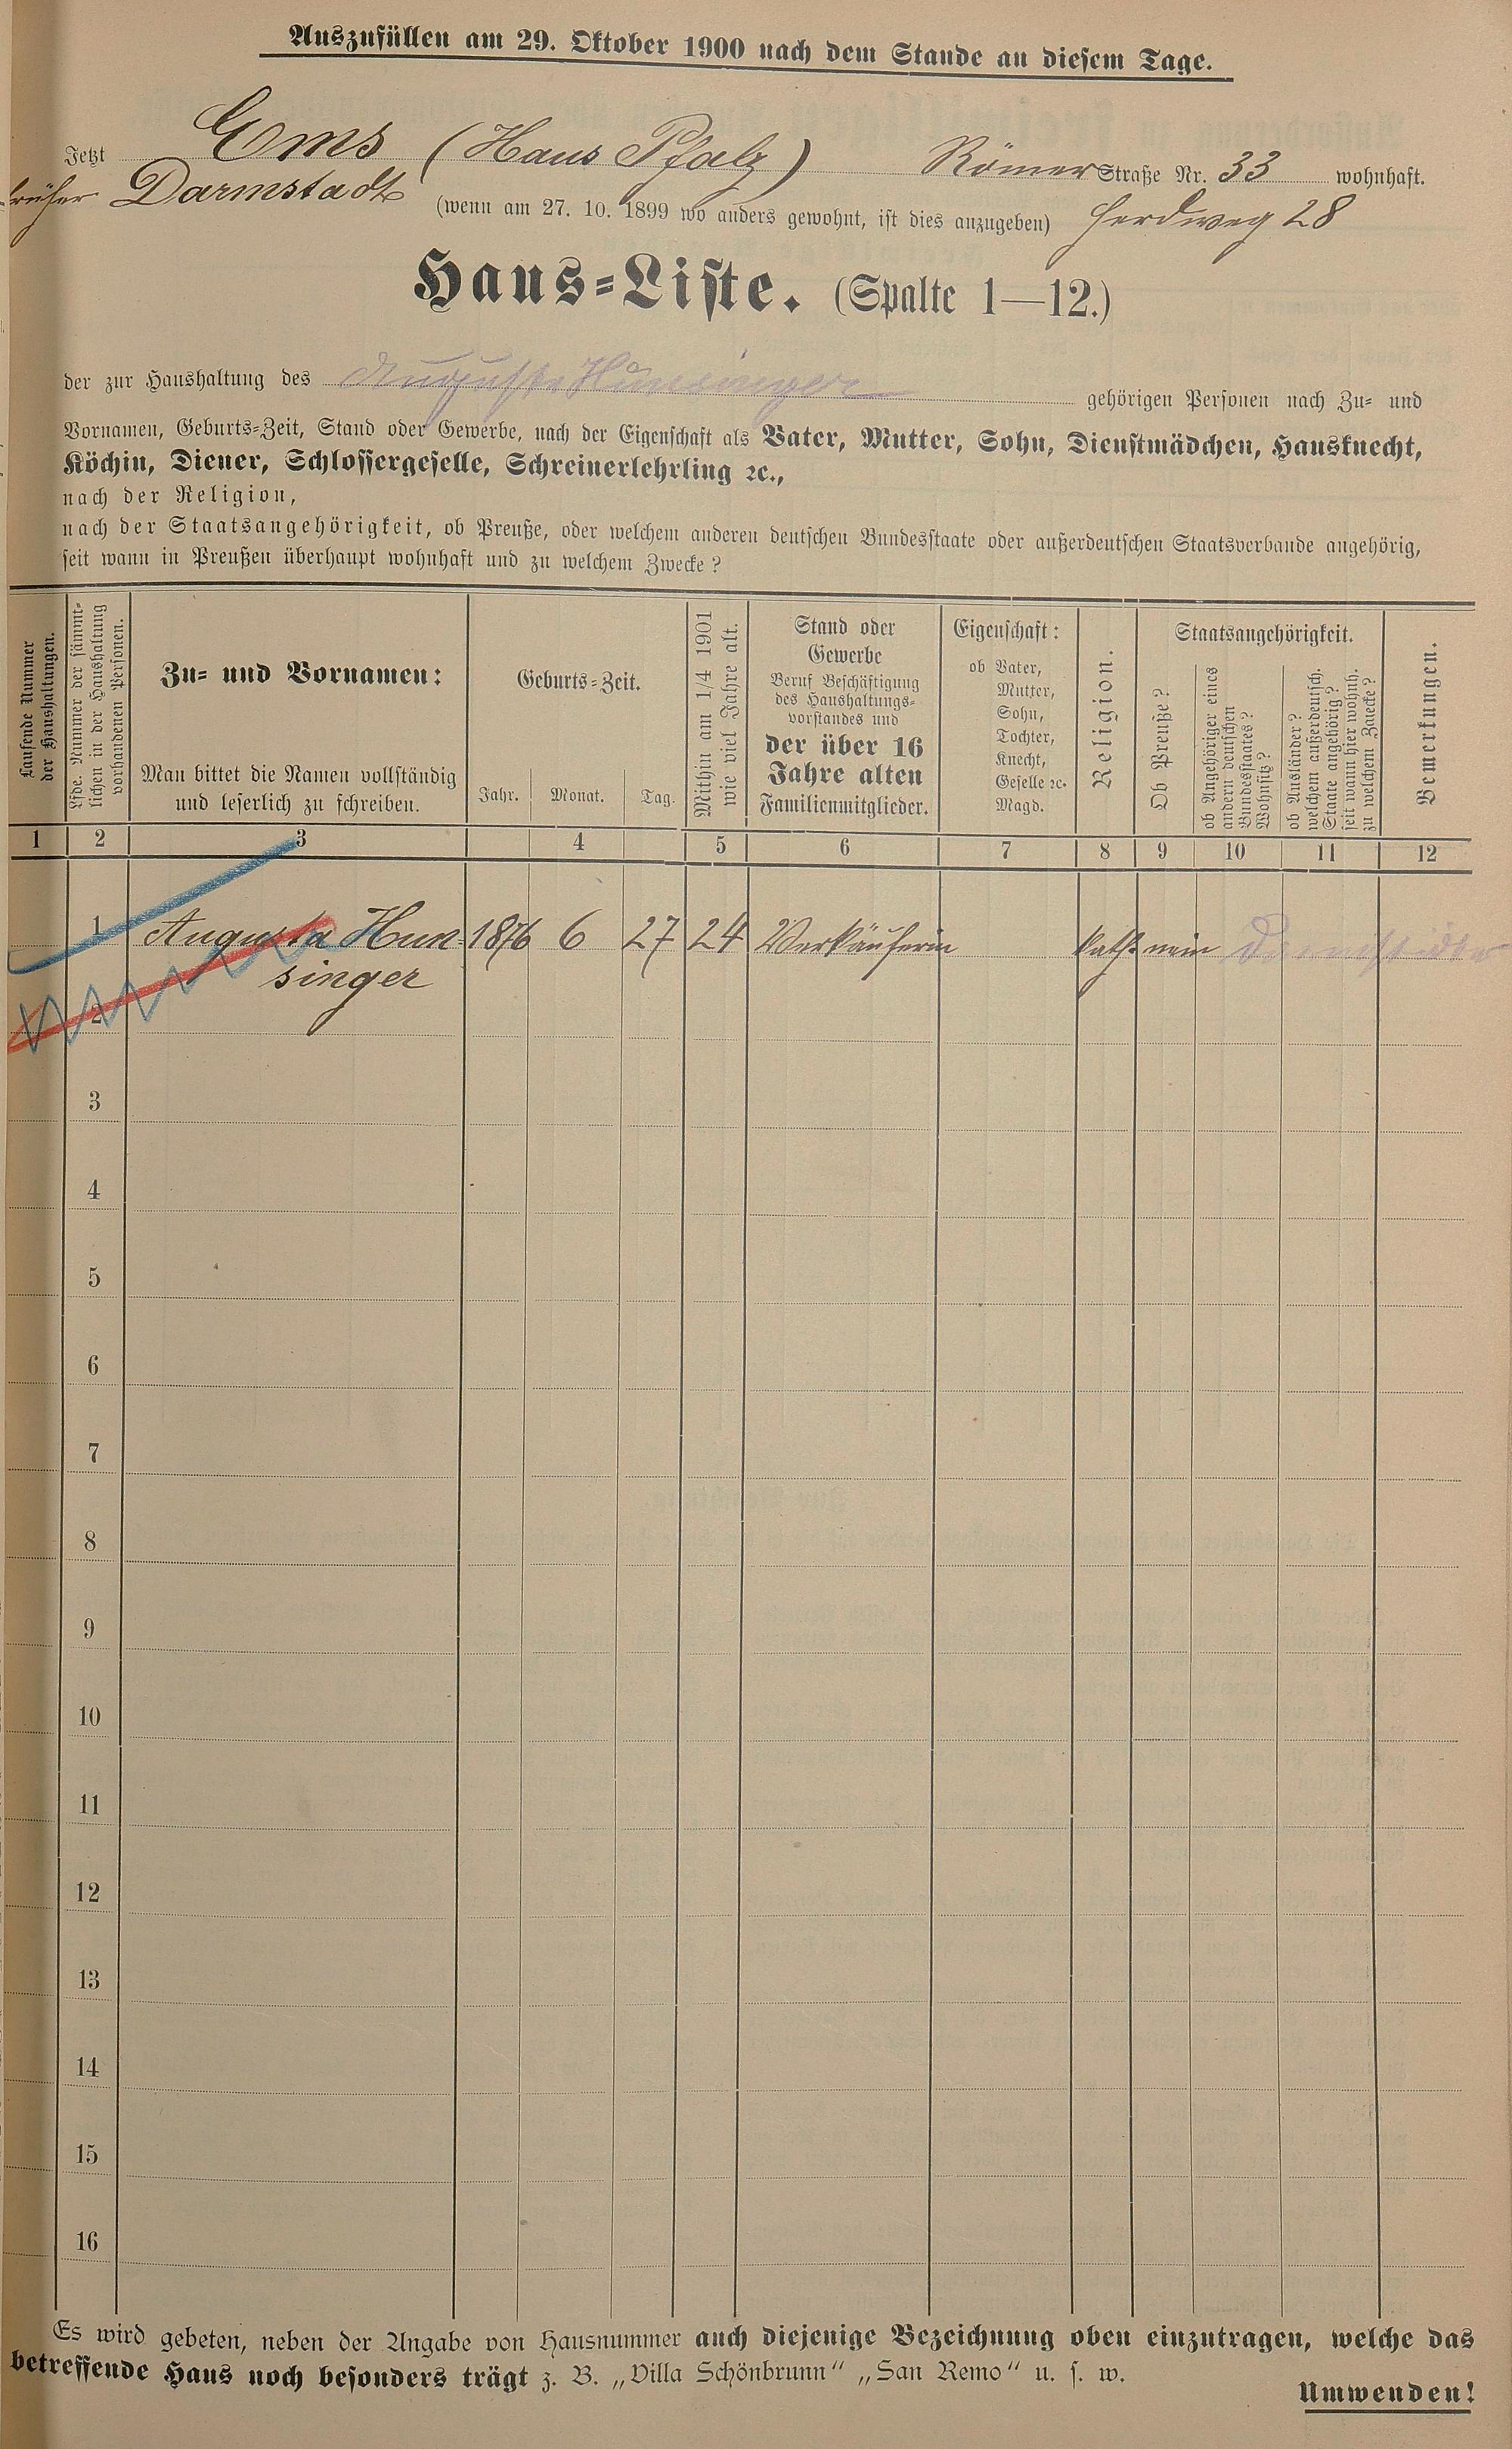 Auszufüllen am 29. Oktober 1900 nach dem Stande an diesem Tage.
Jetzt Ems (Haus Pfalz) Römer Straße Nr. 33 wohnhaft.
früher Darmstadt (wenn am 27. 10. 1899 wo anders gewohnt, ist dies anzugeben) Herdweg 28
Haus=Liste. (Spalte 1—12.)
der zur Haushaltung des Auguste Hunsinger gehörigen Personen nach Zu= und
Vornamen, Geburts=Zeit, Stand oder Gewerbe, nach der Eigenschaft als Vater, Mutter, Sohn, Dienstmädchen, Hausknecht,
Köchin, Diener, Schlossergeselle, Schreinerlehrling ꝛc.,
nach der Religion,
nach der Staatsangehörigkeit, ob Preuße, oder welchem anderen deutschen Bundesstaate oder außerdeutschen Staatsverbande angehörig,
seit wann in Preußen überhaupt wohnhaft und zu welchem Zwecke?
Laufende Nummer
der Haushaltungen.
Lfde. Nummer der sämmt=
lichen in der Haushaltung
vorhandenen Personen.
Zu= und Vornamen:
Man bittet die Namen vollständig
und leserlich zu schreiben.
Geburts=Zeit.
Jahr. Monat. Tag.
Mithin am 1/4 1901
wie viel Jahre alt.
Stand oder
Gewerbe
Beruf Beschäftigung
des Haushaltungs=
vorstandes und
der über 16
Jahre alten
Familienmitglieder.
Eigenschaft:
ob Vater,
Mutter,
Sohn,
Tochter,
Knecht,
Geselle ꝛc.
Magd.
Religion.
Staatsangehörigkeit.
Ob Preuße?
ob Angehöriger eines
andern deutschen
Bundesstaates?
Wohnsitz?
ob Ausländer?
welchem außerdeutsch.
Staate angehörig?
seit wann hier wohnh.
zu welchem Zwecke?
Bemerkungen.
1 2 3 4 5 6 7 8 9 10 11 12
1 Augusta Hun- 1876 6 27 24 Verkäuferin kath. nein Darmstadt
singer
2
3
4
5
6
7
8
9
10
11
12
13
14
15
16
Es wird gebeten, neben der Angabe von Hausnummer auch diejenige Bezeichnung oben einzutragen, welche das
betreffende Haus noch besonders trägt z. B. „Villa Schönbrunn“ „San Remo“ u. s. w.
Umwenden!